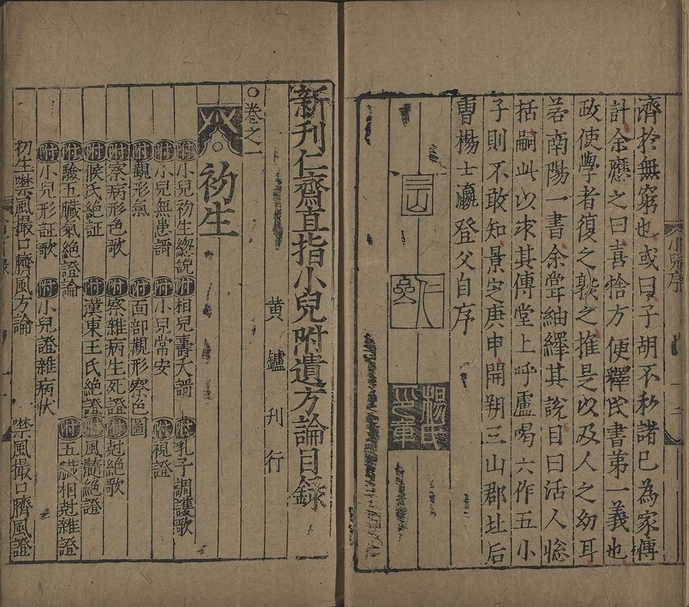 濟於無窮也或曰子胡不私諸已為家傳
計余應之曰喜捨方便釋氏書第一義也
政使學者復之敭之推是以及人之幼耳
若南陽一書余嘗紬繹其說目曰活人總
括嗣此以求其傳堂上呼盧喝六作五小
子則不敢知景定庚申開朔三山郡北后
曹楊士瀛登父自序
楊氏之章
小兒序
新刊仁齋直指小兒附遺方論目錄
黃鑪刊行
○卷之一
初生
附小兒初生總說 附相兒壽夭譜 附乳子調護歌
附小兒無患謌 附小兒常安 附視證
附觀形氣 附面部觀形察色圖
附察病形色歌 附察雜病生死證 附惡絕歌
附候氏絕証 附漢東王氏絕證 附風癎絕證
附驗五臟氣絕證論 附五臟相尅雜證
附小兒形証歌 附小兒證雜病狀
初生噤風撮口臍風方論 噤風撮口臍風證